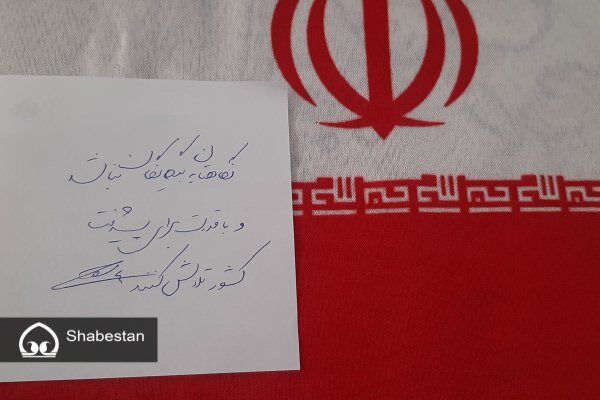 نگاهتان به بیگانگان نباشد
و با قدرت برای پیشرفت
کشور تلاش کنید
Shabestan